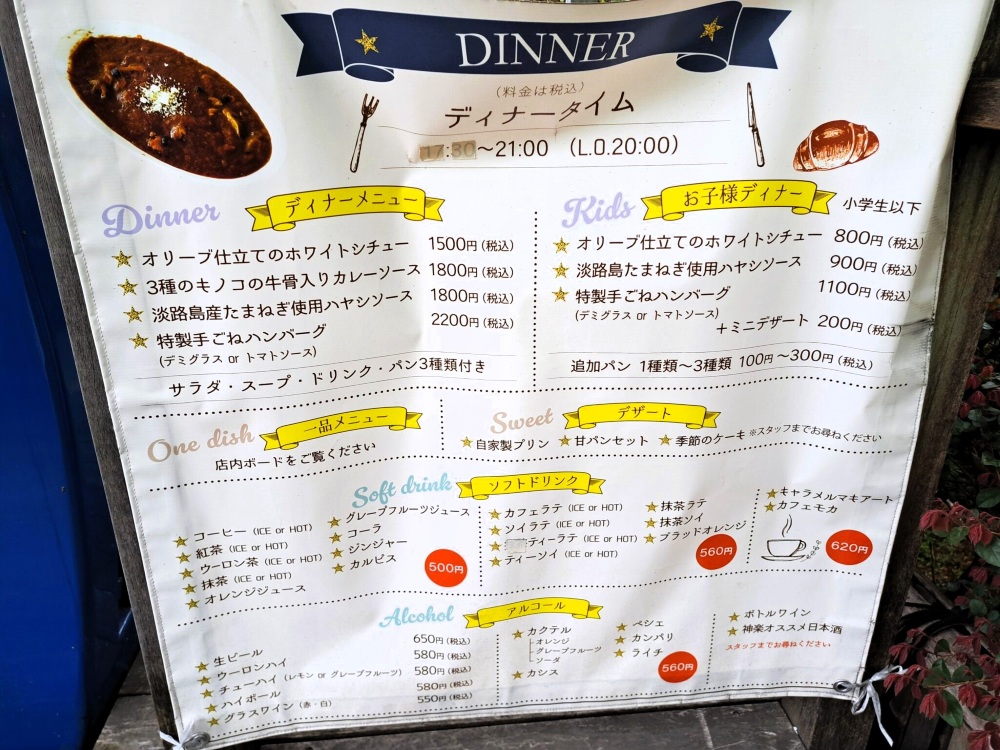 DINNER
(料金は税込)
ディナータイム
17:30〜21:00 (L.O.20:00)
Dinner ディナーメニュー
オリーブ仕立てのホワイトシチュー 1500円(税込)
3種のキノコの牛骨入りカレーソース 1800円(税込)
淡路島産たまねぎ使用ハヤシソース 1800円(税込)
特製手ごねハンバーグ 2200円(税込)
(デミグラス or トマトソース)
サラダ・スープ・ドリンク・パン3種類付き
Kids お子様ディナー 小学生以下
オリーブ仕立てのホワイトシチュー 800円(税込)
淡路島たまねぎ使用ハヤシソース 900円(税込)
特製手ごねハンバーグ 1100円(税込)
(デミグラス or トマトソース)
+ミニデザート 200円(税込)
追加パン 1種類〜3種類 100円〜300円(税込)
One dish 一品メニュー
店内ボードをご覧ください
Sweet デザート
自家製プリン 甘パンセット 季節のケーキ ※スタッフまでお尋ねください
Soft drink ソフトドリンク
コーヒー (ICE or HOT)
紅茶 (ICE or HOT)
ウーロン茶 (ICE or HOT)
抹茶 (ICE or HOT)
オレンジジュース
グレープフルーツジュース
コーラ
ジンジャー
カルピス
500円
カフェラテ (ICE or HOT)
ソイラテ (ICE or HOT)
ティーラテ (ICE or HOT)
ティーソイ (ICE or HOT)
抹茶ラテ
抹茶ソイ
ブラッドオレンジ
560円
キャラメルマキアート
カフェモカ
620円
Alcohol アルコール
生ビール 650円(税込)
ウーロンハイ 580円(税込)
チューハイ (レモン or グレープフルーツ) 580円(税込)
ハイボール 580円(税込)
グラスワイン (赤・白) 550円(税込)
カクテル
オレンジ
グレープフルーツ
ソーダ
カシス
ペシェ
カンパリ
ライチ
560円
ボトルワイン
神楽オススメ日本酒
スタッフまでお尋ねください